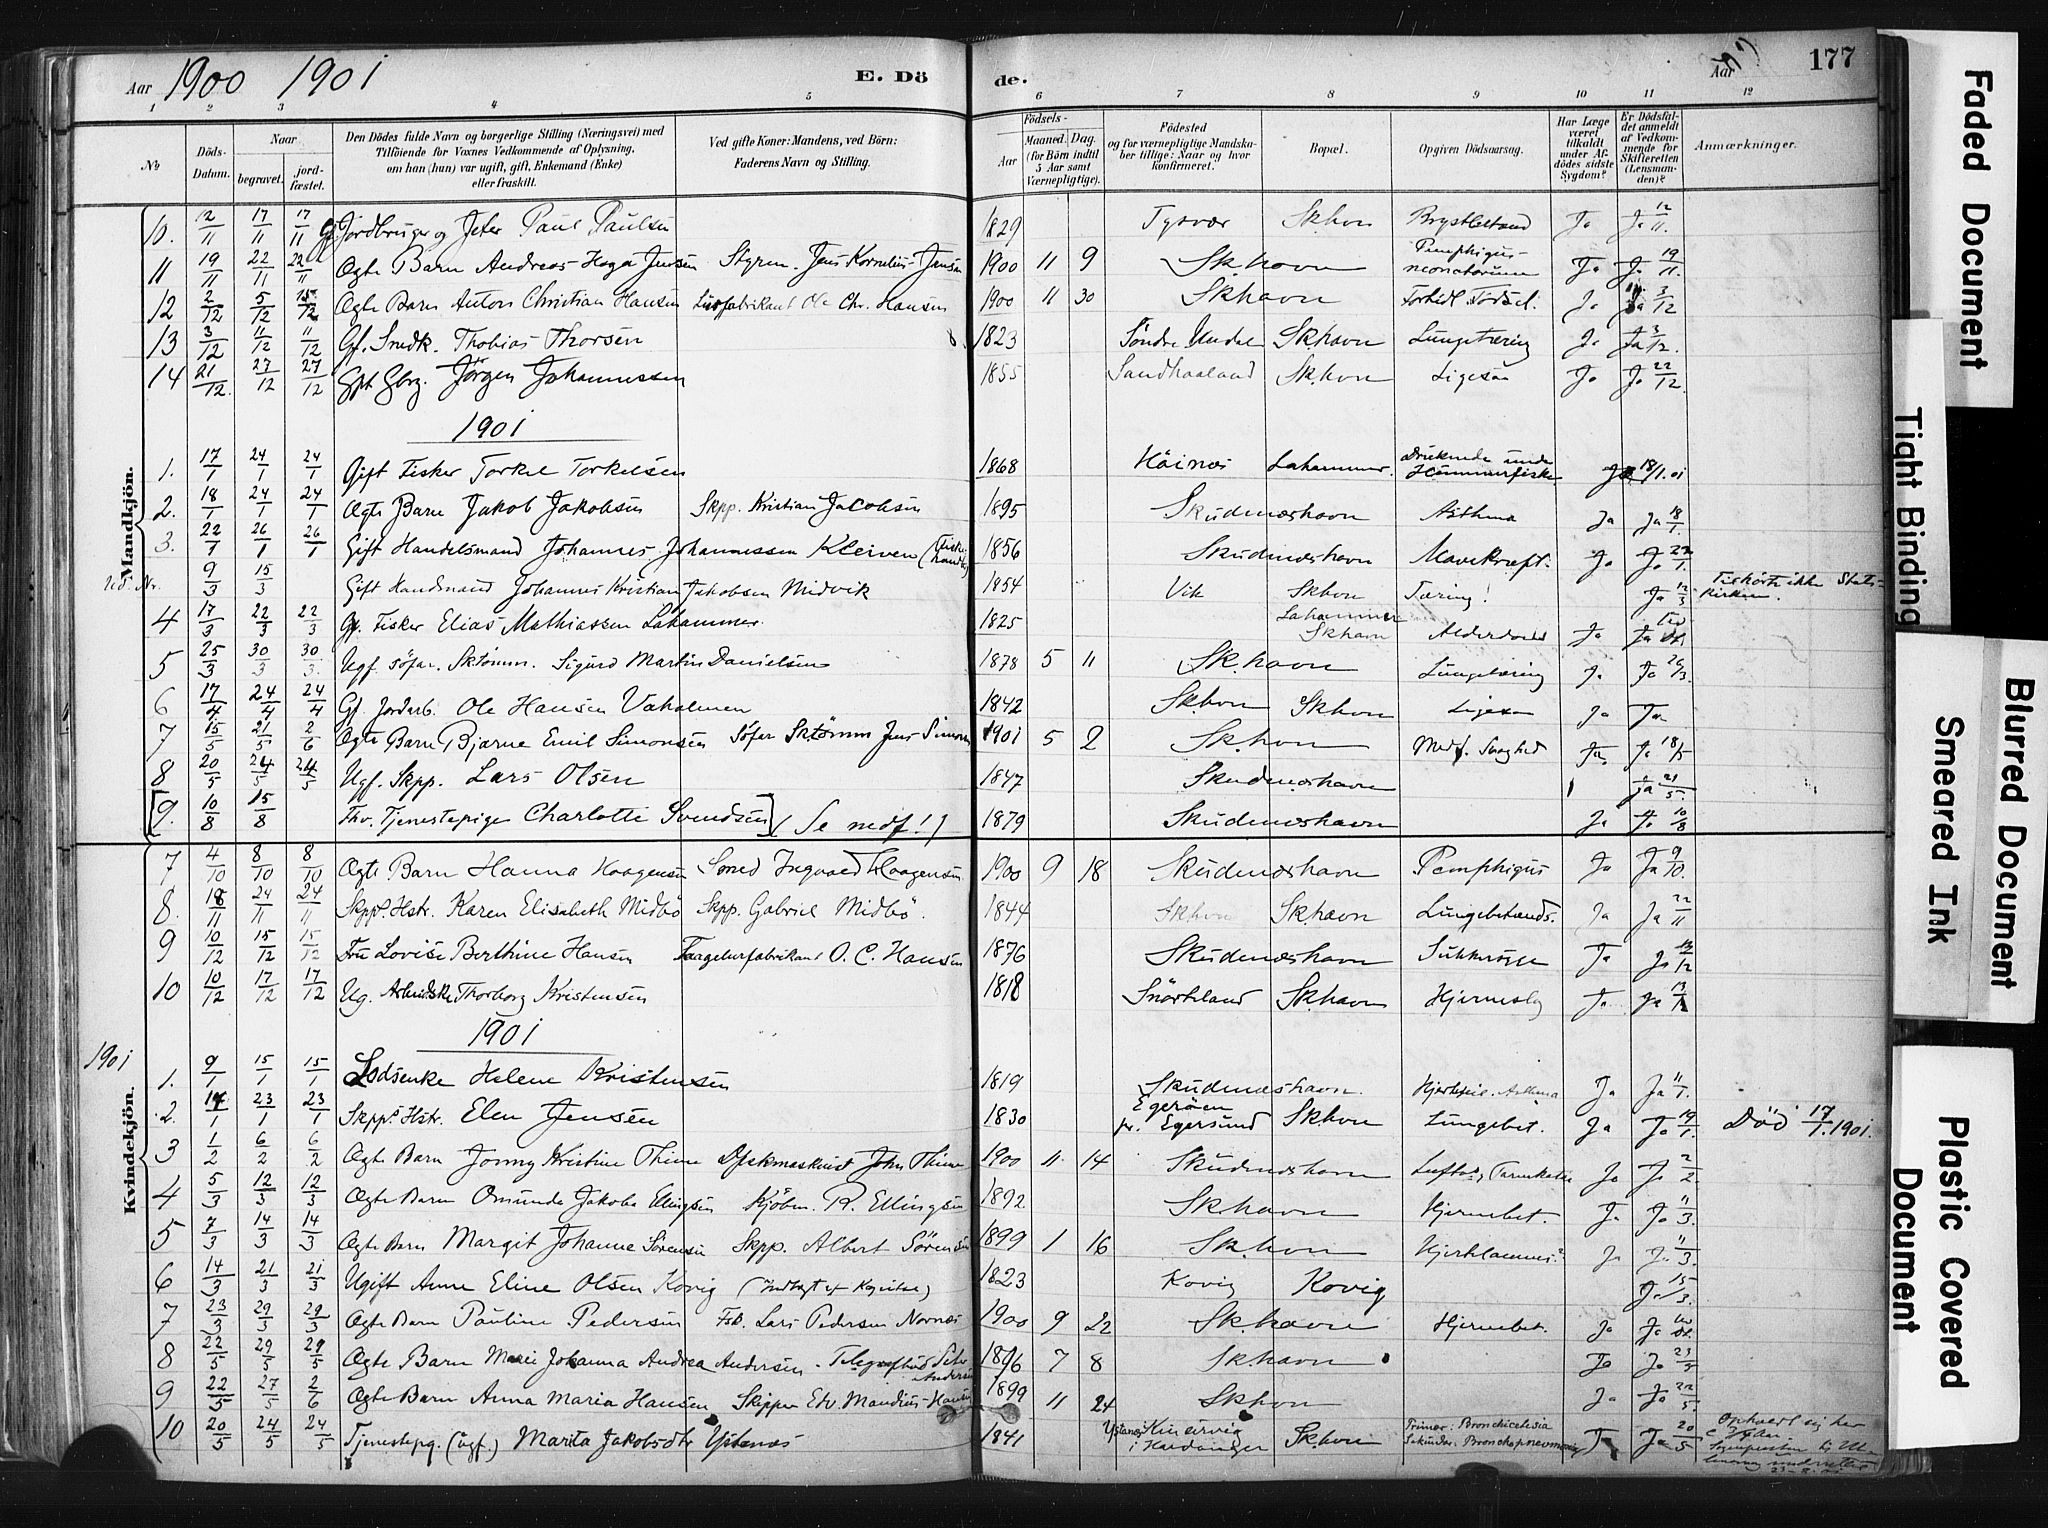 Aar 1900 1901 E. Döde. Aar 177
1 2 3 4 5 6 7 8 9 10 11 12
No
Döds-Datum.
Naar begravet. jordfæstet.
Den Dödes fulde Navn og borgerlige Stilling (Næringsvei) med
Tilföiende for Voxnes Vedkommende af Oplysning,
om han (hun) var ugift, gift, Enkemand (Enke)
eller fraskilt.
Ved gifte Koner: Mandens, ved Börn:
Faderens Navn og Stilling.
Födsels-
Aar
Maaned. Dag.
(for Börn indtil
5 Aar samt
Værnepligtige).
Födested
og for værnepligtige Mandskaber tillige: Naar og hvor
konfirmeret.
Bopæl.
Opgiven Dödsaarsag.
Har Læge
været
tilkaldt
under Afdödes sidste
Sygdom?
Er Dödsfaldet anmeldt
af Vedkommende for
Skifteretten
(Lensmanden)?
Anmærkninger.
Mandkjön.
10. 12/11 17/11 17/11 Gf. Jordbruger Peter Paul Paulsen 1829 Tysvær Skhvn Ja Ja 12/11.
11 19/11 22/11 22/11 Ægte Barn Andreas Jensen Styrm. Jens Kornelius Jensen 1900 11 9 Sk.havn Pemphigus neonatorum Ja Ja 19/11.
12 2/12 5/12 Ægte Barn Anton Christian Hansen Ole Chr. Hansen 1900 11 30 Skhavn Fortidl. Födsel. Ja Ja 3/12
13 3/12 11/12 11/12 Gf. Snedk. Thobias Thorsen 1823 Söndre Undal Skhavn Lungetæring Ja Ja 3/12.
14 21/12. 27/12 27/12 Gift Gbrg. Jörgen Johannessen 1855 Sandhaaland Sk.havn Ja Ja 22/12.
1901
1. 17/1 24/1 24/1 Gift Fisker Torkel Torkelsen 1868 Höines Lahammer. Druknede under 18/1.01
2. 18/1 24/1 24/1 Ægte Barn Jakob Jakobsen Skpp. Kristian Jacobsen 1895 Skudeneshavn Asthma Ja Ja 18/1.
3. 22/1 26/1 26/1 Gift Handelsmand Johannes Johannessen Kleiven 1856 Skudeneshavn Mavekræft. Ja Ja 22/1.
Ud. Nr. 9/3 15/3 Gift Johannes Kristian Jakobsen Midvik 1854 Vik Skhvn Tæring! Ja 12/3 Tilhörte ikke Statskirken.
4 17/3 22/3 22/3 Gf. Fisker Elias Mathiassen Lahammer. 1825 Lahammer Skhavn Ja Ja
5 25/3 30/3 30/3. Ugf. söfar. Sktömm. Sigurd Martin Danielsen 1878 5 11 Sk.havn Lungetæring Ja Ja 26/3.
6 17/4 24/4 24/4 Gf. Jordarb. Ole Hansen Vaholmen 1842 Skhvn Skhvn Ja Ja
7 15/5 21/5 2/6 Ægte Barn Bjarne Emil Simonsen Söfar Sktömm Jens Simon 1901 5 2 Sk.hvn Medf. Svaghed Ja Ja 18/5
8 20/5 24/5 24/5 Ugf. Skpp. Lars Olsen 1847 Skudeneshavn Ja 21/5.
[9. 10/8 15/8 Fhv. Tjenestepige Charlotte Svendsen] (Se nedf!) 1879 Skudeneshavn Ja Ja 10/8
Kvindekjön.
7 4/10 8/10 8/10 Ægte Barn Hanna Haagensen Smed Ingvald Haagensen. 1900 9 18 Skudeneshavn Pemphigus Ja Ja 9/10.
8. 18/11 24/11 24/11 Skpp.s Hstr. Karen Elisabeth Midbö Skpp. Gabriel Midbö. 1844 Skhvn Skhavn Lungebetænds. Ja Ja 22/11
9 10/12 15/12 15/12 Fru Lovise Berthine Hansen Taagelurfabrikant O. C. Hansen 1876 Skudeneshavn Sukkersyge Ja Ja 12/12
10 10/12 17/12 17/12 Ug. Arbeidske Thorborg Kristensen 1818 Skhavn Ja Ja 13/12
1901
1901
1. 9/1 15/1 15/1 Lodsenke Helene Kristensen 1819 Skudeneshavn. Hjertefeil. Asthma Ja Ja 11/1.
2. 23/1 23/1 Skpp.s Hstr. Elen Jensen 1830 Egeröen pr. Egersund Skhvn Lungebet. Ja Ja 19/1. Död 17/1.1901.
3 1/2 6/2 6/2 Ægte Barn Jonny Kristine Thime John Thime 1900 11 14 Skudeneshavn Ja Ja 2/2.
4 5/3 12/3 12/3 Ægte Barn Omunda Jakoba Ellingsen Kjöbm. R. Ellingsen 1892 Skhavn Hjernebet. Ja Ja 11/3.
5 7/3 14/3 14/3 Ægte Barn Margit Johanne Sörensen Skpp. Albert Sörensen 1899 1 16 Sk.hvn Ja Ja 11/3.
6 14/3 21/3 21/3 Ugift Anne Eline Olsen Kovig 1823 Kovig Kovig Ja 15/3.
7 23/3 29/3 29/3 Ægte Barn Pauline Pedersen Fsk. Lars Pedersen Nornes 1900 9 22 Sk.havn Hjernebet. Ja Ja
8 22/5 29/5 29/5 Ægte Barn Marie Johanna Andrea Andersen 7 8 Sk.havn Ja Ja 23/5
9 22/5 27/5 2/6 Ægte Barn Anna Maria Hansen Skipper Edv. Mandius Hansen 1899 11 24 Skhvn Ja Ja 22/5
10 20/5 24/5 24/5 Tjenestepg. (ugf.) Marita Jakobsdtr Ystenæs 1841 Ystenæs Kinservig i Hardanger Sk.hvn Primær. Sekundær. Bronchopneumonie Ja Ja 20/5 Opholdt sig her
Faded Document
Tight Binding
Blurred Document
Smeared Ink
Plastic Covered
Document